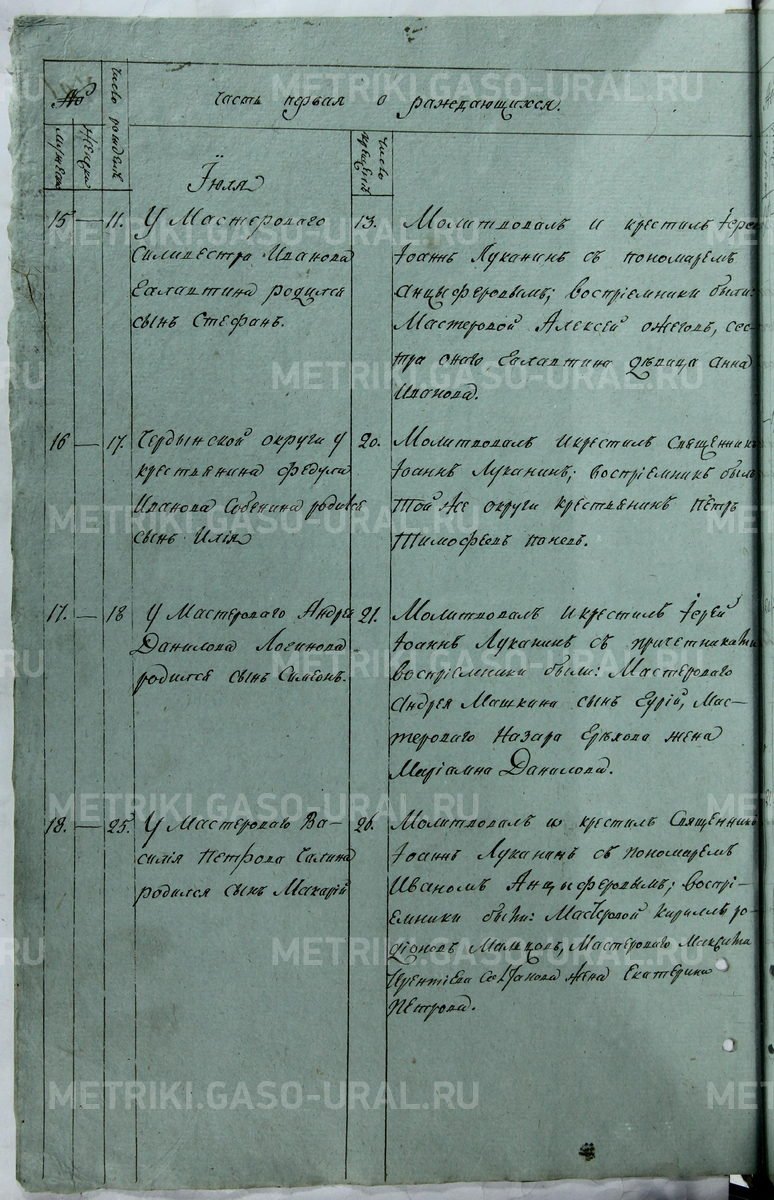 №
Часть первая о раждающихся.
мужеска
женска
число рожденія
число крещенія
Іюля
15 — 11.
У Мастероваго
Силивестра Иванова
Галактина родился
сынъ Стефанъ.
13.
Молитвовалъ и крестилъ Іерей
Іоаннъ Луканинъ съ пономаремъ
Анцыферовымъ; воспріемники были:
Мастеровой Алексей Ожеговъ, сес-
тра онаго Галактина дѣвица Анна
Иванова.
16 — 17.
Чердынской округи у
крестьянина Федула
Иванова Собенина родился
сынъ Илія
20.
Молитвовалъ и крестилъ Священникъ
Іоаннъ Луканинъ; воспріемникъ былъ
той же округи крестьянинъ Петръ
Тимофеевъ Поповъ.
17. — 18
У Мастероваго Андрея
Данилова Логинова
родился сынъ Симеонъ.
21.
Молитвовалъ и крестилъ Іерей
Іоаннъ Луканинъ съ причетниками
воспріемники были: Мастероваго
Андрея Машкина сынъ Еѵрій, Мас-
тероваго Назара Ерѣхова жена
Маріамна Данилова.
18. — 25.
У Мастероваго Ва-
силія Петрова Галина
родился сынъ Макарій
26.
Молитвовалъ и крестилъ Священникъ
Іоаннъ Луканинъ съ пономаремъ
Иваномъ Анцыферовымъ; воспрі-
емники были: Мастеровой Кириллъ Ро-
діоновъ Мальцовъ, Мастероваго Максима
Терентіева жена Екатерина
Петрова.
METRIKI.GASO-URAL.RU